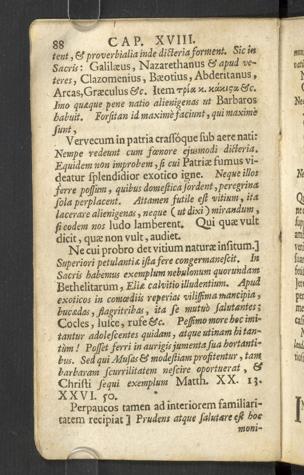 88 CAP. XVIII.
tent, & proverbialia inde dicteria forment. Sic in
Sacris: Galilæus, Nazarethanus & apud ve-
teres, Clazomenius, Bæotius, Abderitanus,
Arcas, Græculus &c. Item τρία κ. κάκιςα &c.
Imo quæque pene natio alienigenas ut Barbaros
habuit. Forsitan id maximè faciunt, qui maximè
sunt,
Vervecum in patria crassôque sub aere nati:
Nempe redeunt cum fœnore ejusmodi dicteria.
Equidem non improbem, si cui Patriæ fumus vi-
deatur splendidior exotico igne. Neque illos
ferre possum, quibus domestica sordent, peregrina
sola perplacent. Attamen futile est vitium, ita
lacerare alienigenas, neque (ut dixi) mirandum,
si eodem nos ludo lamberent. Qui quæ vult
dicit, quæ non vult, audiet.
Ne cui probro det vitium naturæ insitum.]
Superiori petulantiæ ista fere congermanescit. In
Sacris habemus exemplum nebulonum quorundam
Bethelitarum, Eliæ calvitio illudentium. Apud
exoticos in comœdiis reperias vilissima mancipia,
bucædas, flagritribas, ita se mutuò salutantes;
Cocles, lusce, rufe &c. Pessimo more hoc imi-
tantur adolescentes quidam, atque utinam hi tan-
tùm! Posset ferri in aurigis jumenta sua hortanti-
bus. Sed qui Musas & modestiam profitentur, tam
barbaram scurrilitatem nescire oportuerat, &
Christi sequi exemplum Matth. XX. 13.
XXVI. 50.
Perpaucos tamen ad interiorem familiari-
tatem recipiat] Prudens atque salutare est hoc
moni-